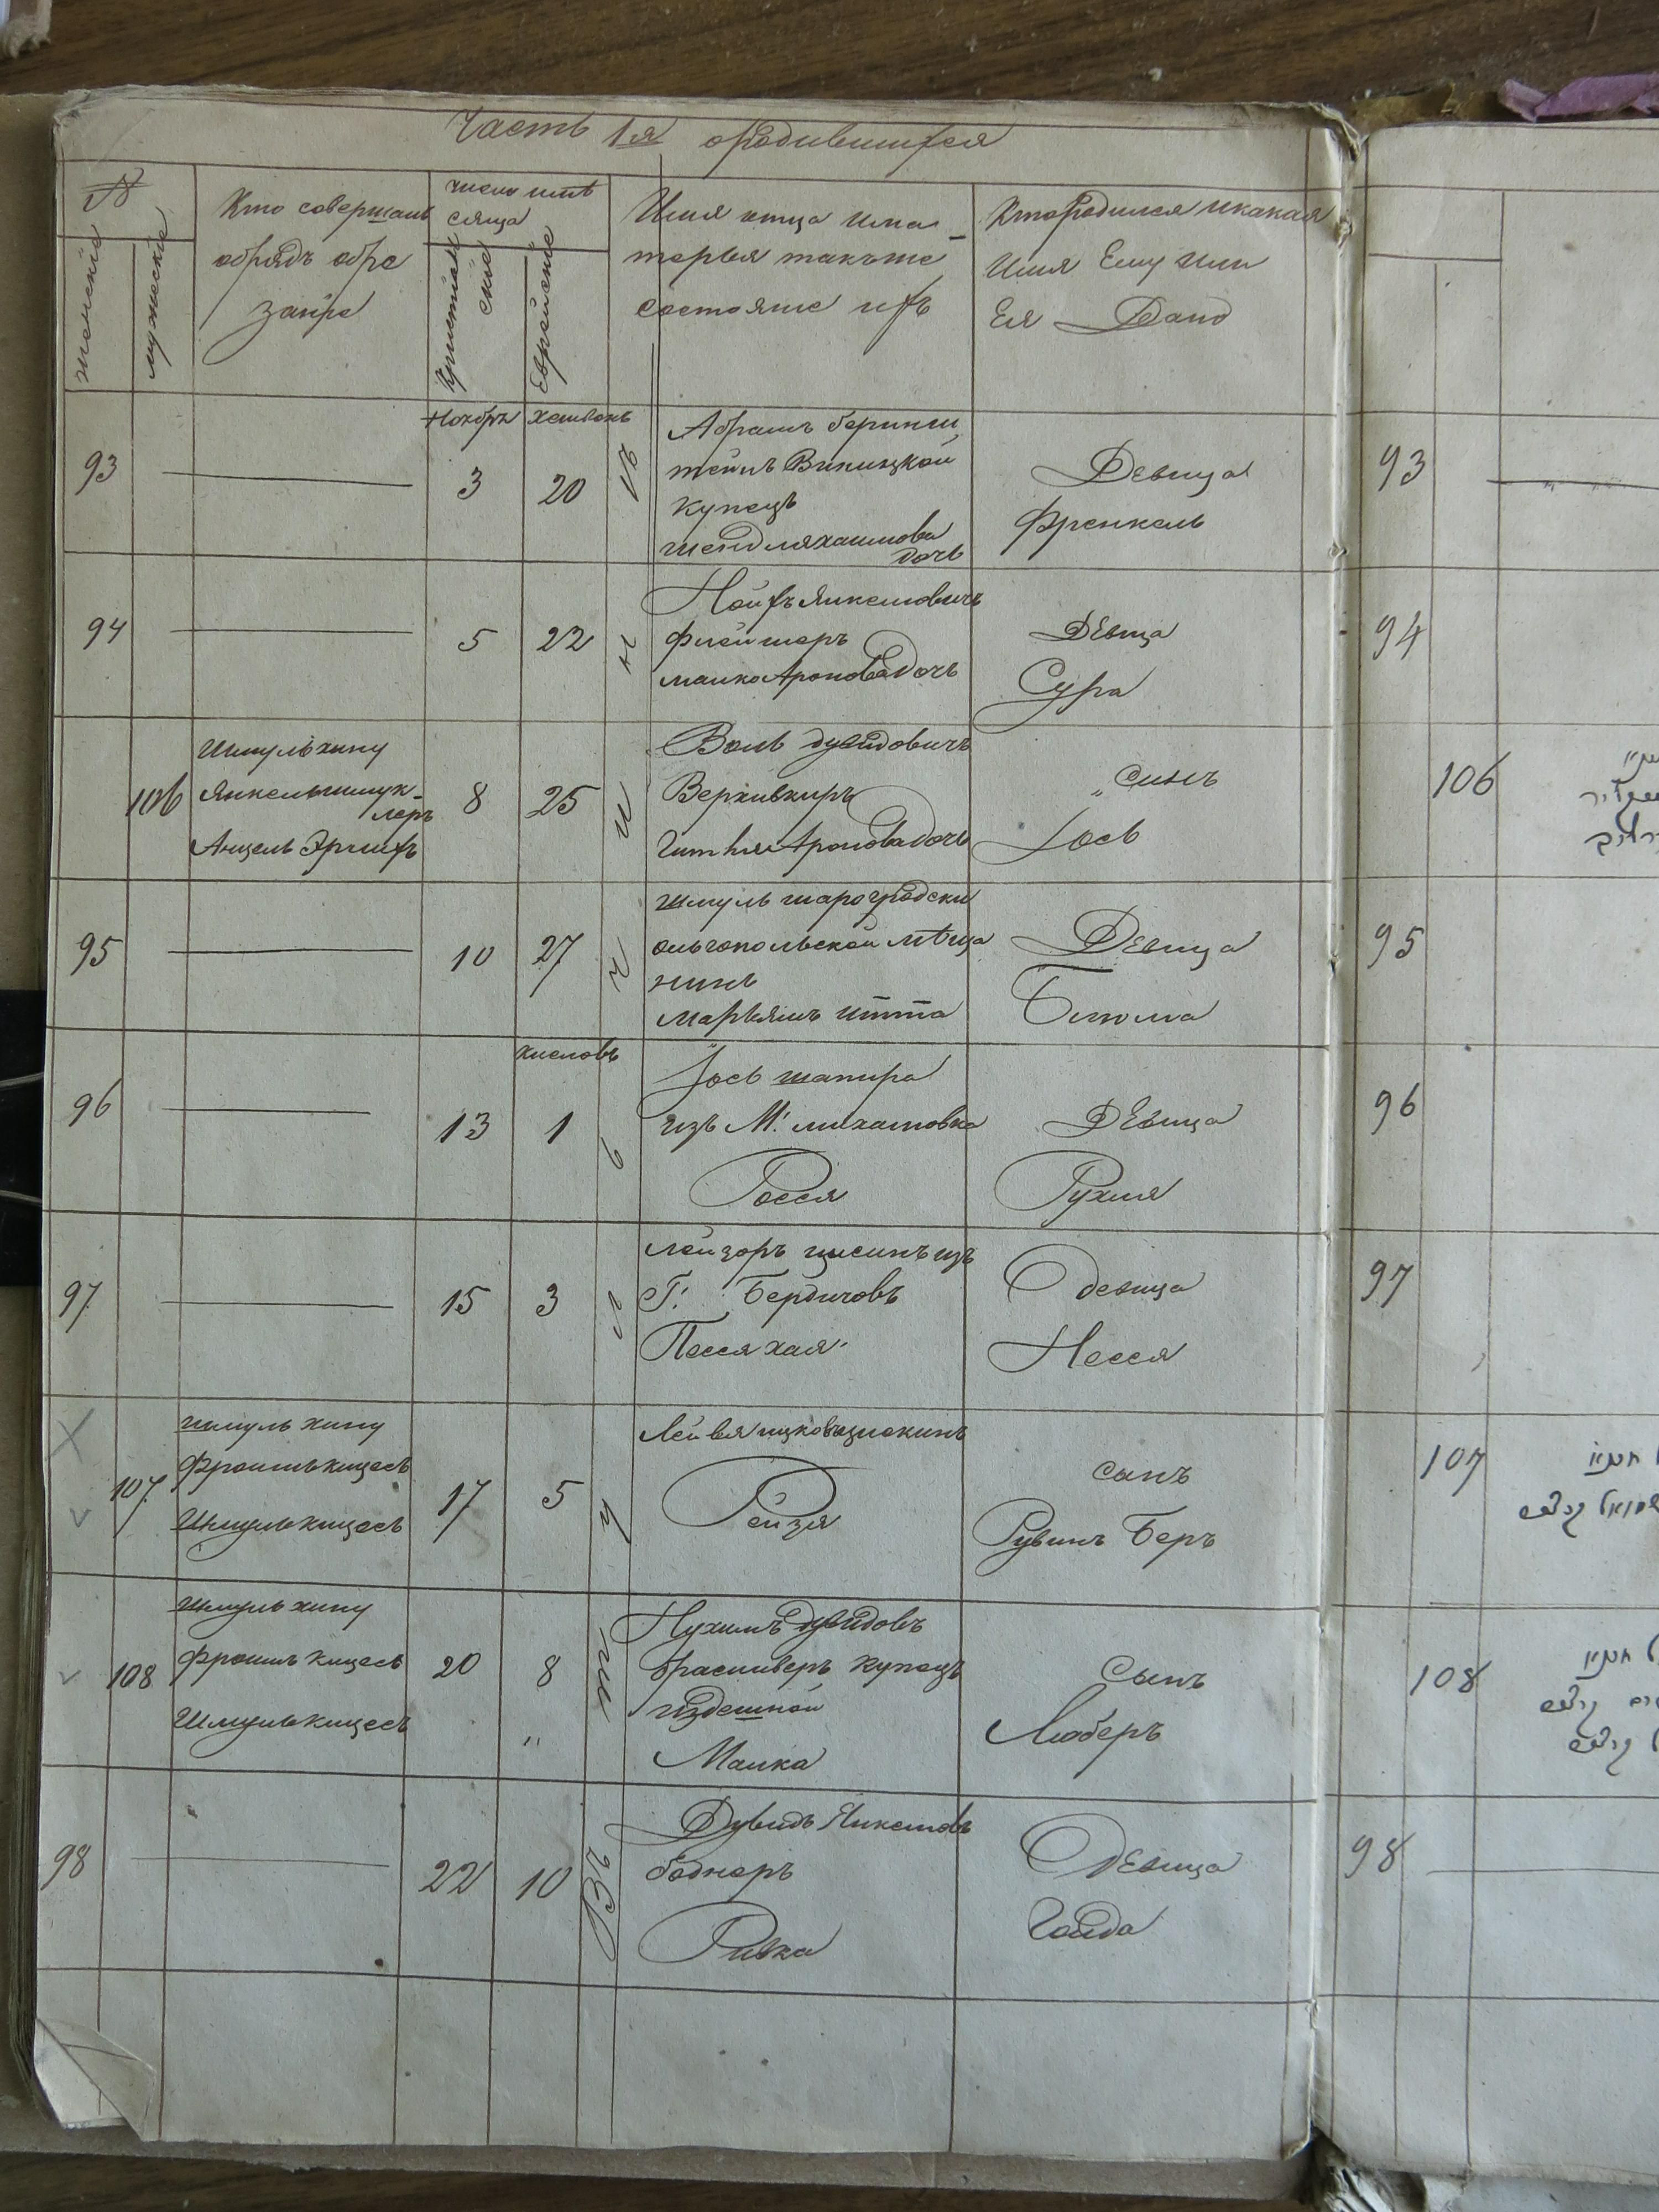 Часть 1я ородившихся
№
женскіе
мужескіе
Кто совершалъ
обрядъ обре
занія
число имѣ
сяца
Христіан
скіе
Еврейскіе
Имя отца има-
терья такъже
состояніе ихъ
Ктородился икакая
Имя Ему или
Ея Дано
Ноябрь хешвонъ
93
3
20
Въ
Абрамъ беринш
тейнъ Виницкой
купецъ
шендляхаимова
дочь
Девица
Френкель
93
94
5
22
Ноихъ Янкелювичъ
флейшеръ
малкоАроноваДочь
Девица
Сура
94
106
Шмуль хину
Янкельшмук-
леръ
Анцель Эрлихъ
8
25
и
Волъ дувидовичъ
Верхивкиръ
ГитляАроноваДочь
Сынъ
Іось
106
95
10
27
Шмуль шарогродски
ольгопольской мѣща
нинъ
Марьямъ Итта
Девица
Блюма
95
кисловъ
96
13
1
в
Іось шапира
изъ М. михаловка
Росся
Девица
Рухля
96
97
15
3
л
Лейзоръ цисинъ изъ
Г. Бердичовъ
Песся хая
девица
Несся
97
107
шмуль хину
Фроимъкицесъ
Шмулькицесъ
17
5
у
Лейвя ицковъцюкинъ
Рейзя
сынъ
Рувинъ Беръ
107
108
шмуль хину
фроимъ кицесъ
Шмулькицесъ
20
8
"
Нухимъ дувидовъ
Брасливеръ купецъ
издешной
Малка
Сынъ
Люберъ
108
98
22
10
Въ
Дувидъ Янкелювъ
боднеръ
Ривка
девица
Голда
98